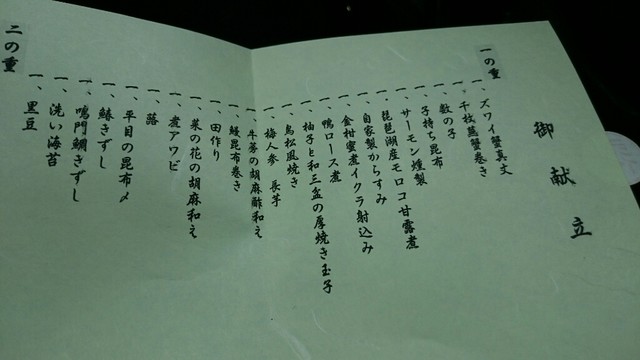 御献立
一の重
一、ズワイ蟹真丈
一、千枚蕪蟹巻き
一、数の子
一、子持ち昆布
一、サーモン燻製
一、琵琶湖産モロコ甘露煮
一、自家製からすみ
一、金柑蜜煮イクラ射込み
一、鴨ロース煮
一、柚子と和三盆の厚焼き玉子
一、鳥松風焼き
一、梅人参 長芋
一、牛蒡の胡麻酢和え
一、鰻昆布巻き
一、田作り
一、菜の花の胡麻和え
一、煮アワビ
一、蕗
一、平目の昆布〆
一、鰆きずし
一、鳴門鯛きずし
一、洗い海苔
二の重
一、黒豆